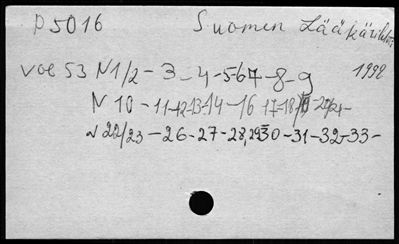 P5016 Suomen Lääkärilehti
vol 53 N1/2 - 3 - 4 - 5 - 6 7 - 8 - 9 1998
N 10 - 11 - 12 - 13 - 14 - 16 17 - 18/19 - 20/21 -
N 22/23 - 26 - 27 - 28, 29 30 - 31 - 32 - 33 -